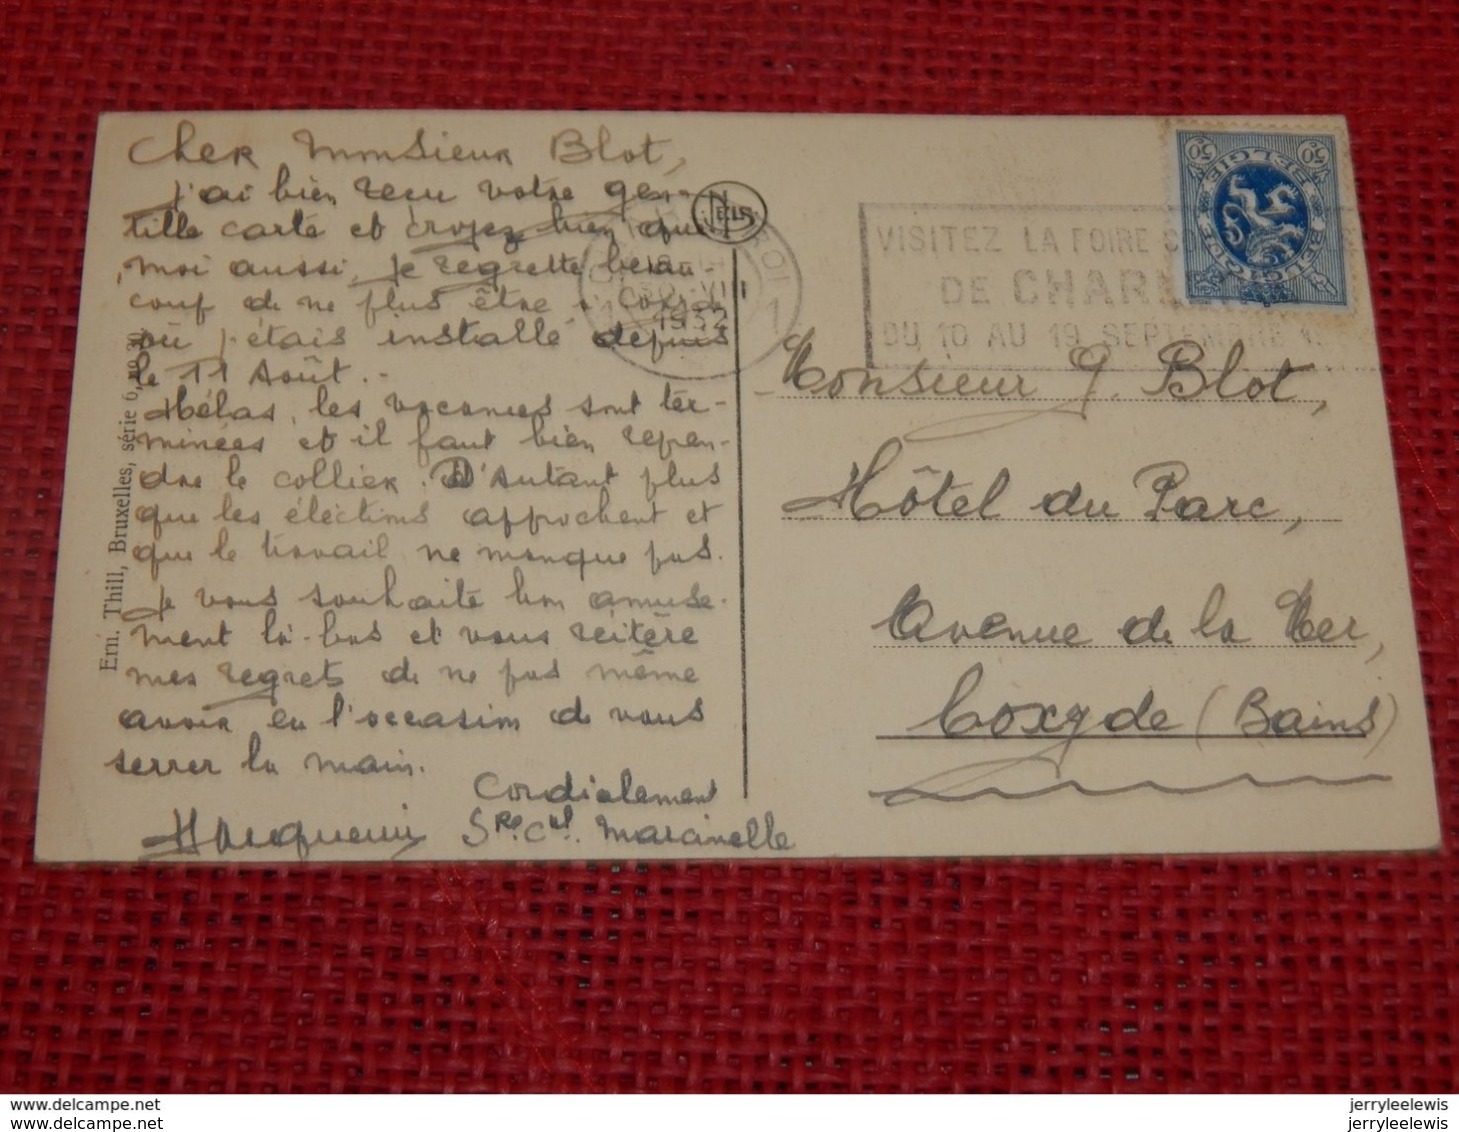 Cher Monsieur Blot,
J'ai bien reçu votre gen-
tille carte et croyez bien que
moi aussi, je regrette beau-
coup de ne plus être à Coxyde
où j'étais installé depuis
le 11 Août.-
Hélas, les vacances sont ter-
minées et il faut bien repren-
dre le collier. D'autant plus
que les élections approchent et
que le travail ne manque pas.
Je vous souhaite bon amuse-
ment là-bas et vous réitère
mes regrets de ne pas même
avoir eu l'occasion de vous
serrer la main.
Cordialement
Sre. Cal. Marcinelle
Ern. Thill, Bruxelles, série 6, no 30
NELS
1932
1
VISITEZ LA FOIRE
DE CHAR
DU 10 AU 19 SEPTEMBRE
50 BELGIE 50
BELGIQUE BELGIE
Monsieur G. Blot,
Hôtel du Parc,
Avenue de la Mer,
Coxyde (Bains)
jerryleelewis
www.delcampe.net
jerryleelewis
www.delcampe.net